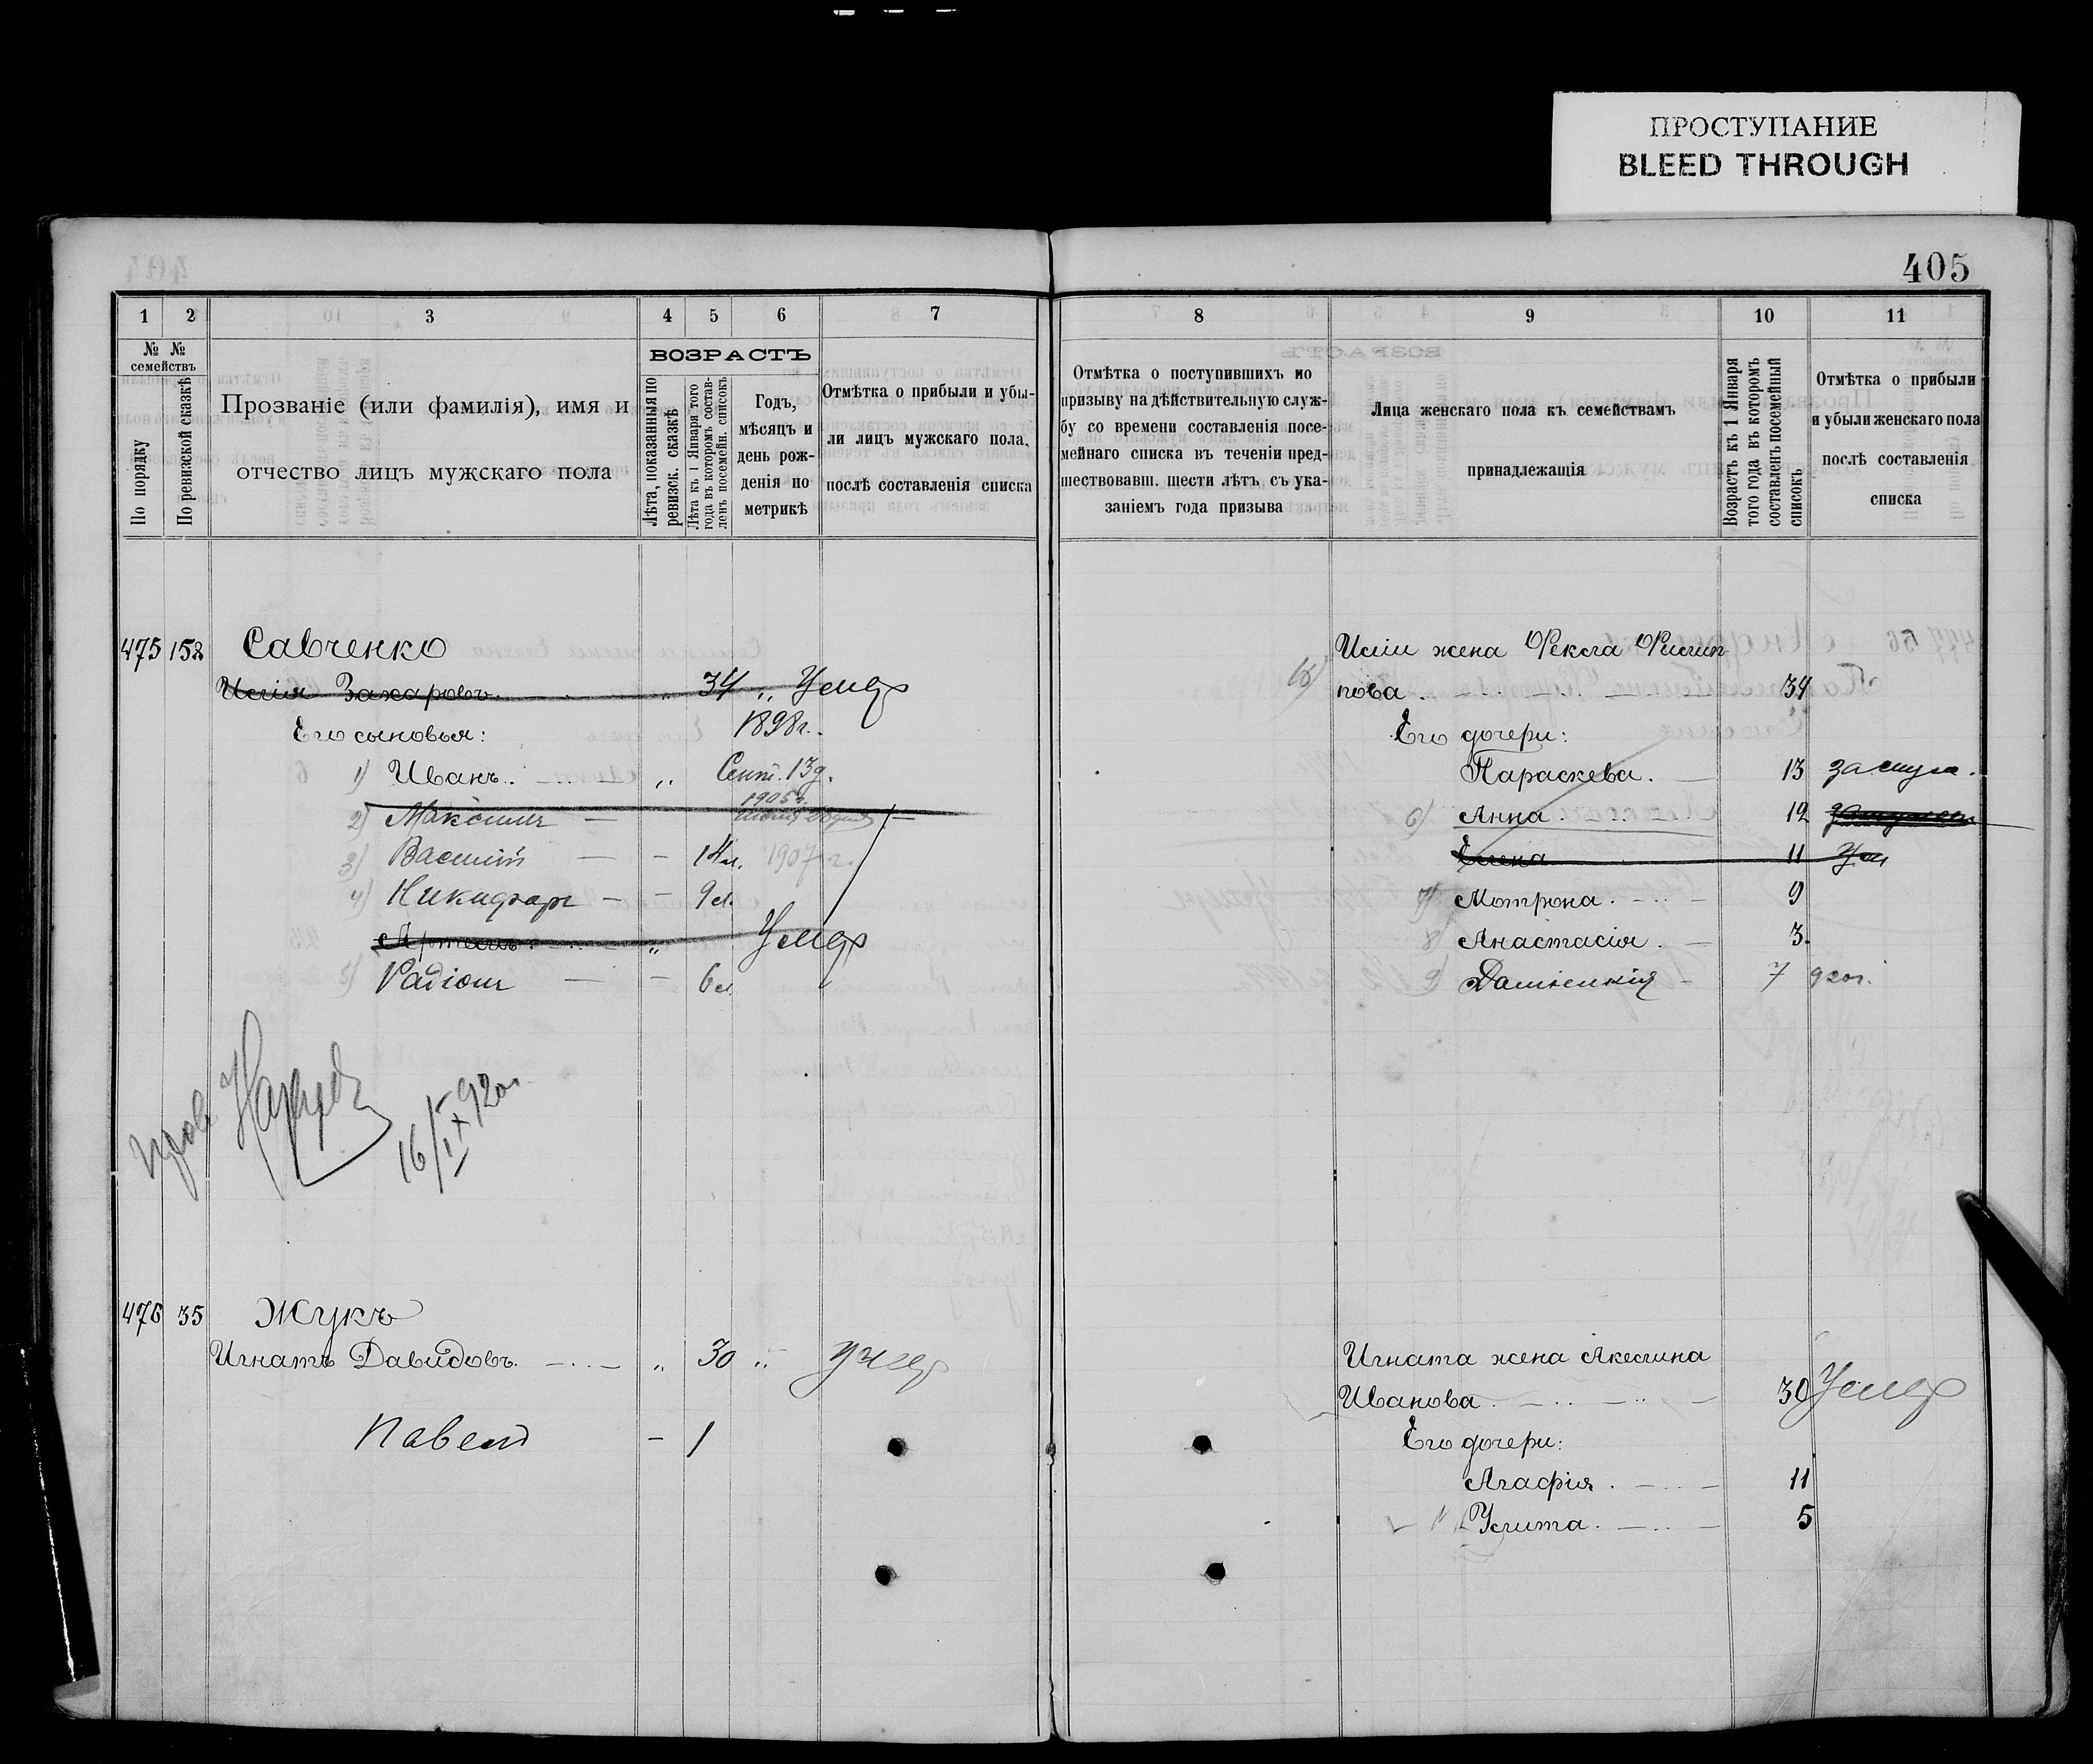 ПРОСТУПАНИЕ
BLEED THROUGH
405
1 2 3 4 5 6 7
№ № семействъ
По порядку
По ревизской сказкѣ
Прозваніе (или фамилія), имя и
отчество лицъ мужскаго пола
ВОЗРАСТЪ
Лѣта, показанныя по
ревизск. сказкѣ
Лѣта къ 1 Января того
года въ которомъ состав-
ленъ посемейн. списокъ
Годъ,
мѣсяцъ и
день рож-
денія по
метрикѣ
Отмѣтка о прибыли и убы-
ли лицъ мужскаго пола,
послѣ составленія списка
475 152 Савченко
Исаія Захаровъ. „ 34 „ Умеръ
Его сыновья: 1898г.
1) Иванъ. „ Сент. 13д.
1905г.
2) Максимъ —
3) Василій — — 14л. 1907г.
4) Никифоръ — — 9л.
Артемъ. „ Умеръ
5) Радіонъ — — 6л.
16/IX 920г.
476 35 Жукъ
Игнатъ Давидовъ. „ 30 „ Умеръ
Павелъ — 1
8 9 10 11
Отмѣтка о поступившихъ по
призыву на дѣйствительную служ-
бу со времени составленія посе-
мейнаго списка въ теченіи пред-
шествовавш. шести лѣтъ съ ука-
заніемъ года призыва
Лица женскаго пола къ семействамъ
принадлежащія
Возрастъ къ 1 Января
того года въ которомъ
составленъ посемейный
списокъ
Отмѣтка о прибыли
и убыли женскаго пола
послѣ составленія
списка
жена Фекла Филип-
пова. 34
Его дочери:
Параскева. 13 замуж.
6) Анна. 12
Елена 11 Ум
7) Мотрона. 9
8) Анастасія. 3.
9) 7 920г.
Игната жена Акелина
Иванова. 30 Умер
Его дочери:
Агафія. 11
Улита. 5